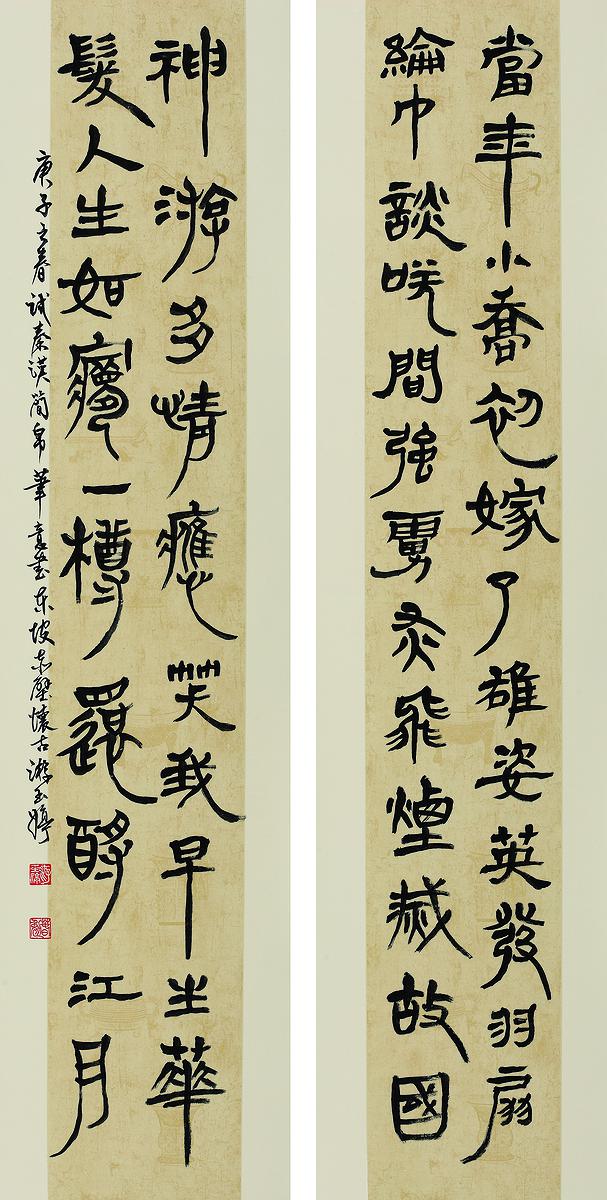 當年小喬初嫁了雄姿英發羽扇
綸巾談咲間強虜灰飛煙滅故國
神游多情應笑我早生華
髮人生如夢一樽還酹江月
庚子之春試秦漢簡帛筆意書東坡赤壁懷古游玉婷